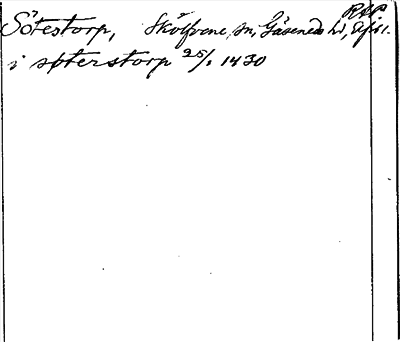 RAP
Sötestorp, Skölfvene sn, Gäsened hd, Äfsb l.
i søterstorp 25/1 1430